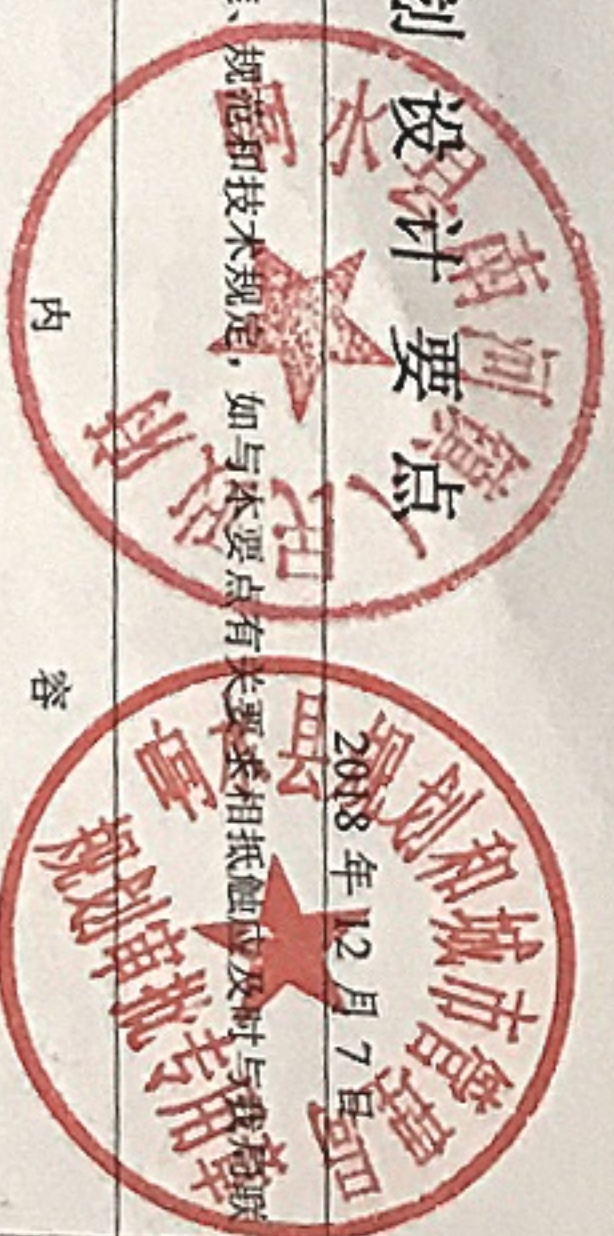 划设计要点
2018年12月7日
、规范和技术规定，如与本要点有关要求相抵触应及时与我局联
内 容
响水县南河镇人民政府
响水县规划和城市管理局
规划审批专用章